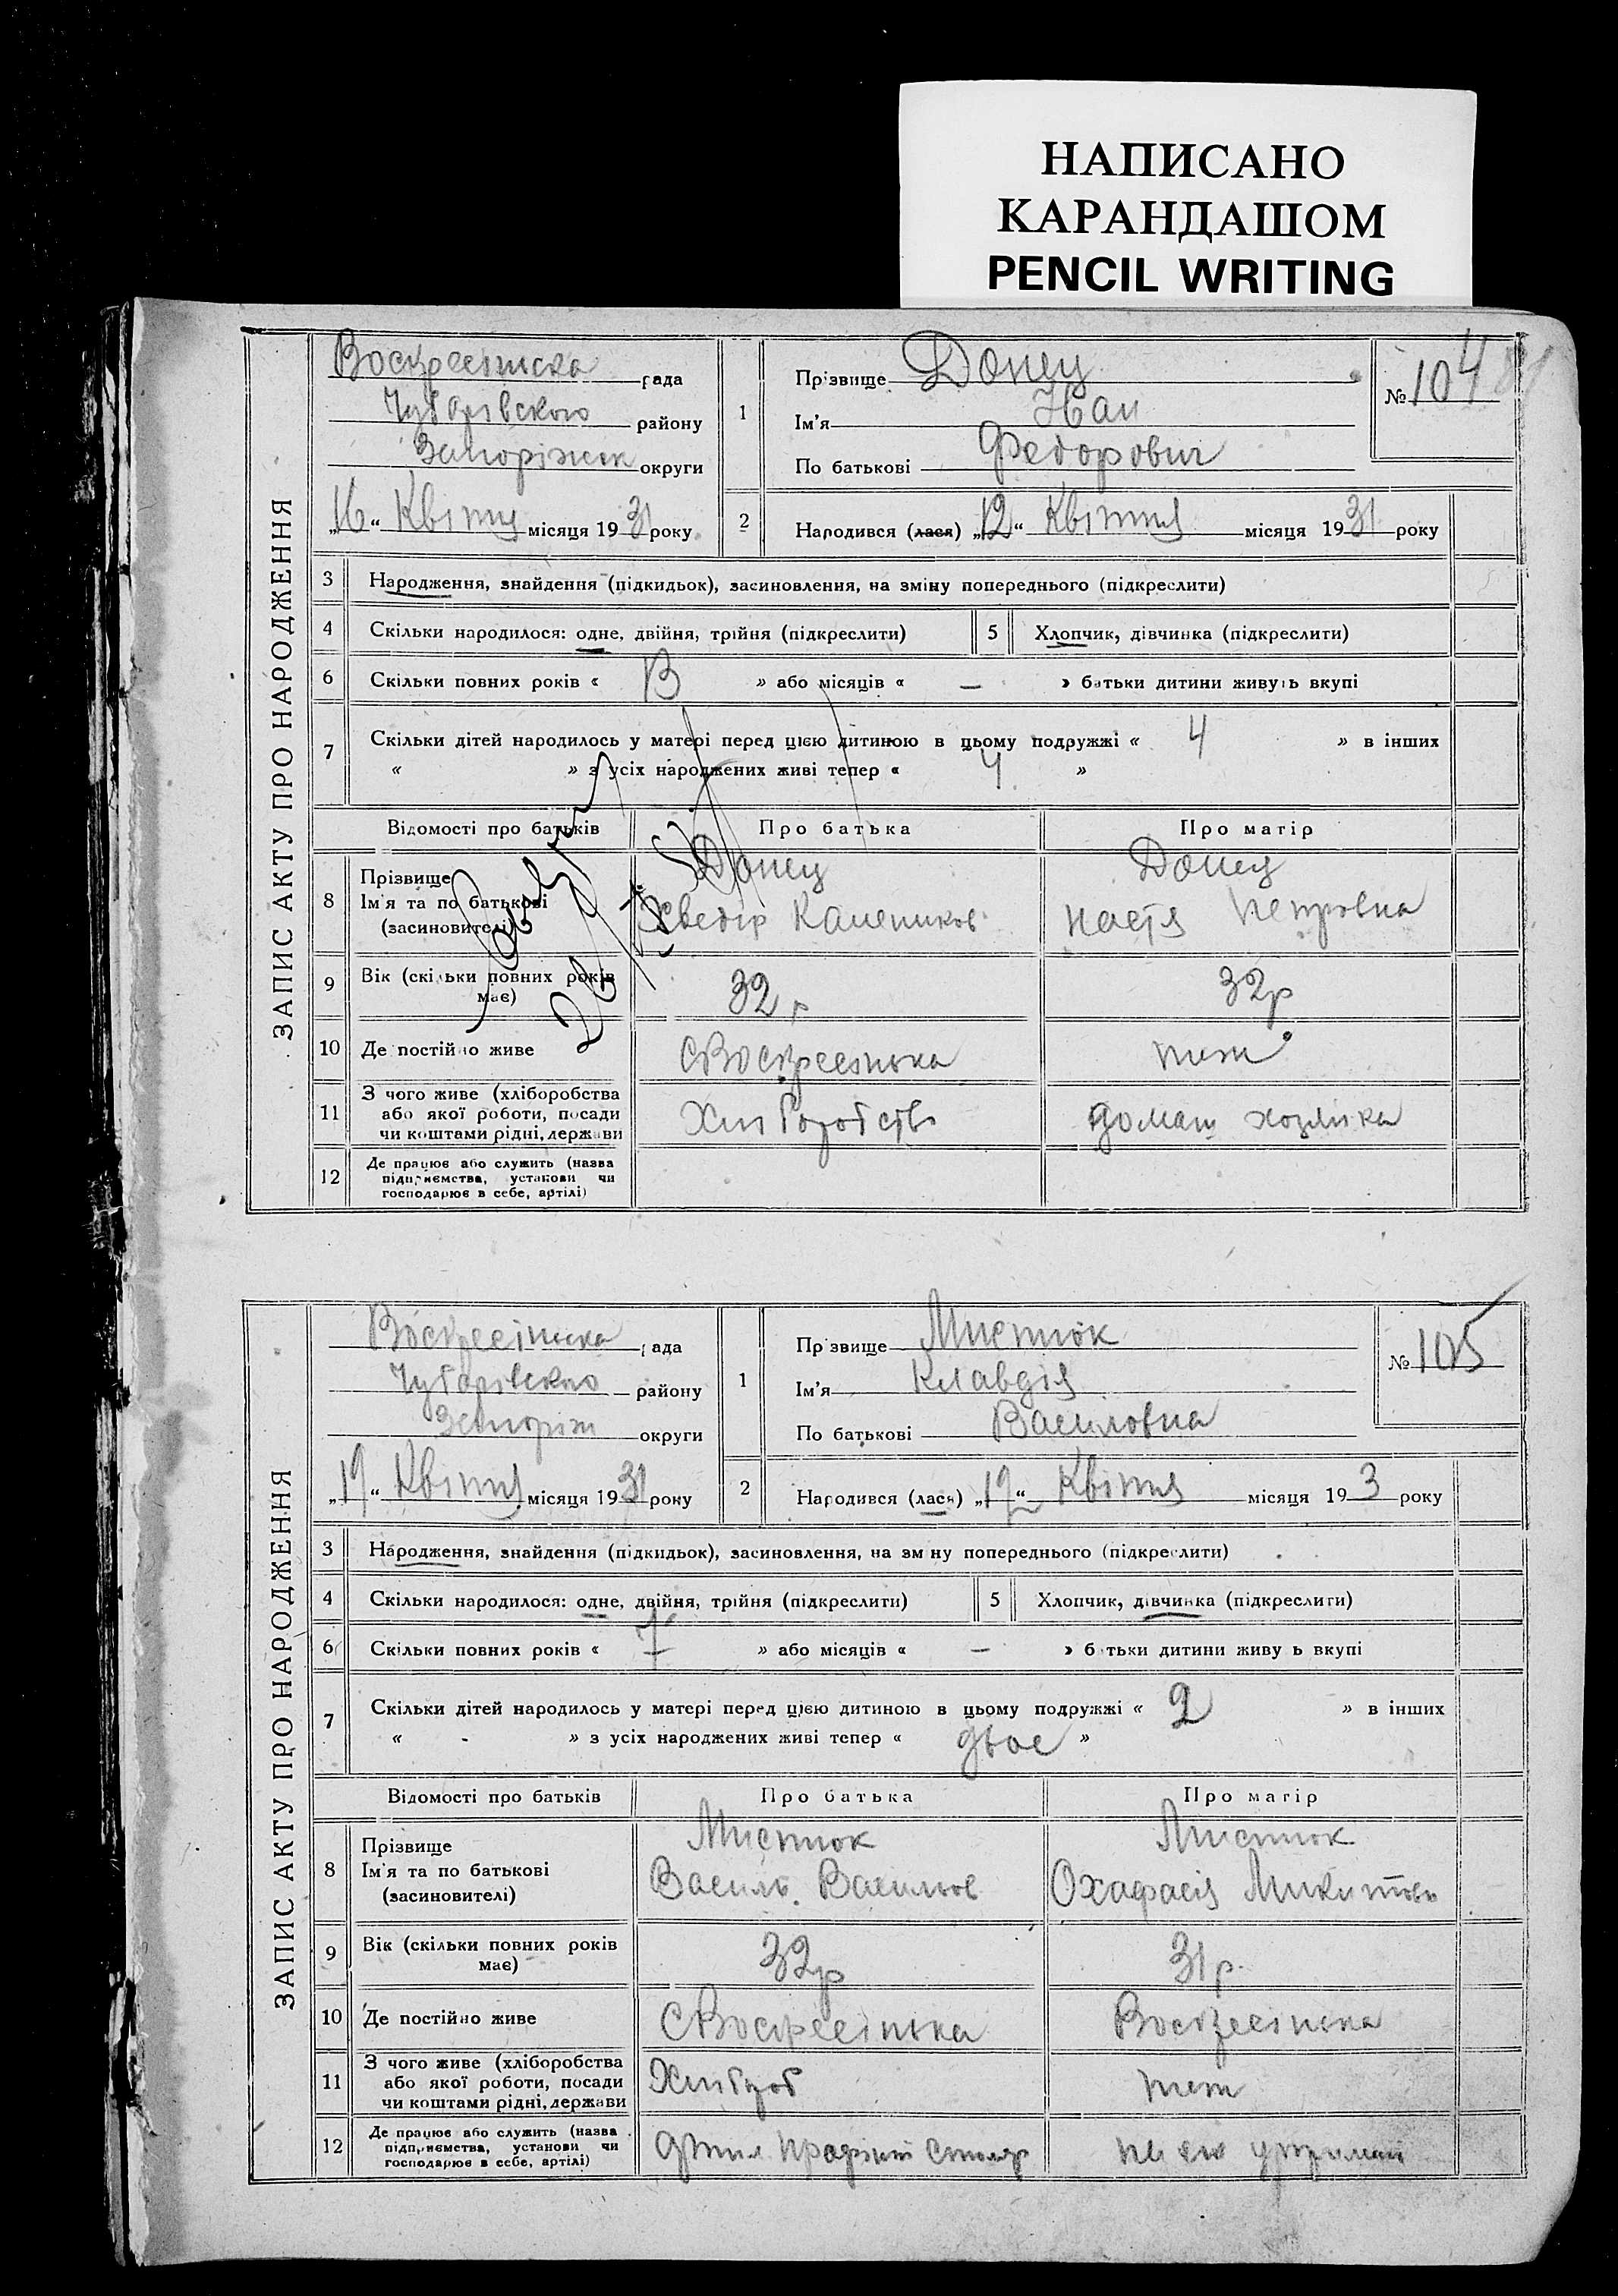 НАПИСАНО
КАРАНДАШОМ
PENCIL WRITING
ЗАПИС АКТУ ПРО НАРОДЖЕННЯ
Воскресінска рада
Чубарівского району
Запоріжск округи
„16“ Квітня місяця 1931 року
1
Прізвище Донец
Ім'я Іван
По батькові Федорович
№ 104
2
Народився (лася) „12“ Квітня місяця 1931 року
3 Народження, знайдення (підкидьок), засиновлення, на зміну попереднього (підкреслити)
4 Скільки народилося: одне, двійня, трійня (підкреслити) 5 Хлопчик, дівчинка (підкреслити)
6 Скільки повних років « 13 » або місяців « — » батьки дитини живуть вкупі
7 Скільки дітей народилось у матері перед цією дитиною в цьому подружжі « 4 » в інших
« » з усіх народжених живі тепер « 4 »
Відомості про батьків Про батька Про матір
8 Прізвище Ім'я та по батькові (засиновителі) Донец Хведір Донец Настя Петровна
9 Вік (скільки повних років має) 32 р 32 р
10 Де постійно живе С Воскресінька теж
11 З чого живе (хліборобства або якої роботи, посади чи коштами рідні, держави Хліборобств домаш хозяйка
12 Де працює або служить (назва підприємства, установи чи господарює в себе, артілі)
ЗАПИС АКТУ ПРО НАРОДЖЕННЯ
Воскресінска рада
Чубарівского району
Запоріж округи
„19“ Квітня місяця 1931 року
1
Прізвище Мистюк
Ім'я Клавдія
По батькові Василовна
№ 105
2
Народився (лася) „19“ Квітня місяця 193 року
3 Народження, знайдення (підкидьок), засиновлення, на зміну попереднього (підкреслити)
4 Скільки народилося: одне, двійня, трійня (підкреслити) 5 Хлопчик, дівчинка (підкреслити)
6 Скільки повних років « 7 » або місяців « — » батьки дитини живуть вкупі
7 Скільки дітей народилось у матері перед цією дитиною в цьому подружжі « 2 » в інших
« - » з усіх народжених живі тепер « двое »
Відомості про батьків Про батька Про матір
8 Прізвище Ім'я та по батькові (засиновителі) Мистюк Василь Васильов Мистюк Микитов
9 Вік (скільки повних років має) 32 р 31 р.
10 Де постійно живе С Воскресінька Воскресінька
11 З чого живе (хліборобства або якої роботи, посади чи коштами рідні, держави Хлібороб теж
12 Де працює або служить (назва підприємства, установи чи господарює в себе, артілі)